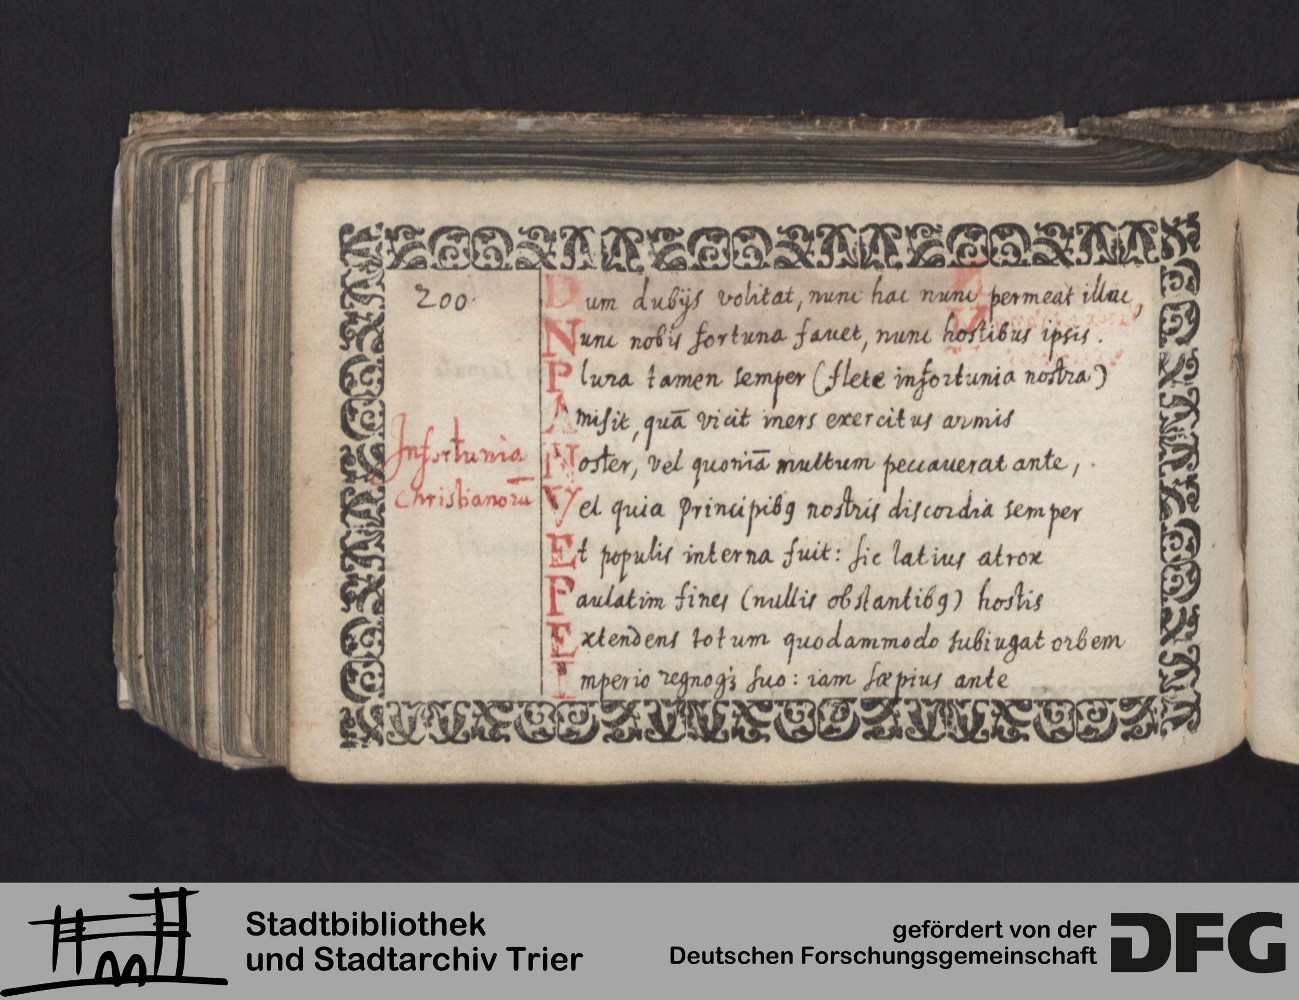 200.
Dum dubijs volitat, nunc hac nunc permeat illac,
Nunc nobis fortuna fauet, nunc hostibus ipsis.
Plura tamen semper (flete infortunia nostra)
Amisit, quā vicit iners exercitus armis
Infortunia
Noster, vel quoniā multum peccauerat ante,
Christianorū
Vel quia principibꝯ nostris discordia semper
Et populis interna fuit: sic latius atrox
Paulatim fines (nullis obstantibꝯ) hostis
Extendens totum quodammodo subiugat orbem
Imperio regnoqꝫ suo: iam sæpius ante
Stadtbibliothek
und Stadtarchiv Trier
gefördert von der
Deutschen Forschungsgemeinschaft
DFG